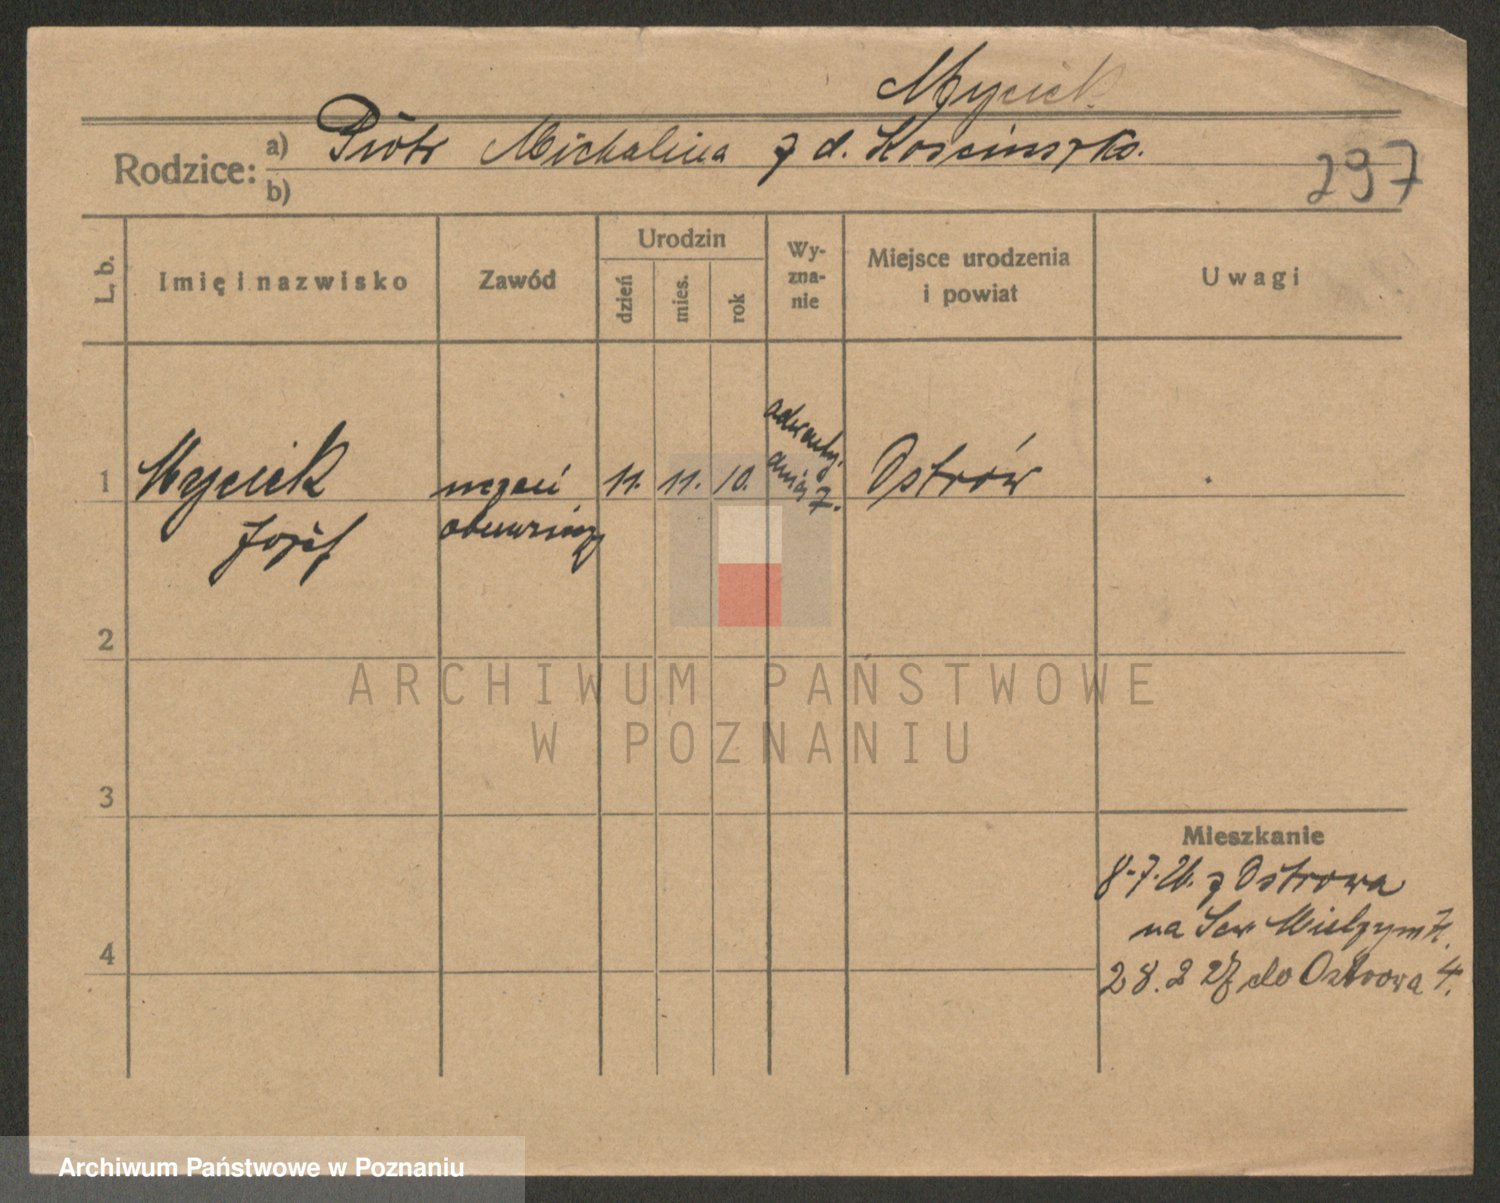 Myciek
Rodzice: a) Piotr Michalina z d. Kościuszko.
b)
297
L. b.
Imię i nazwisko
Zawód
Urodzin
dzień
mies.
rok
Wy-
zna-
nie
Miejsce urodzenia
i powiat
Uwagi
1
Myciek
Józef
uczeń
11. 11. 10.
Ostrów
2
3
4
Mieszkanie
8-7.26. z Ostrowa
na
28.2 27 do Ostrowa 4.
ARCHIWUM PAŃSTWOWE
W POZNANIU
Archiwum Państwowe w Poznaniu